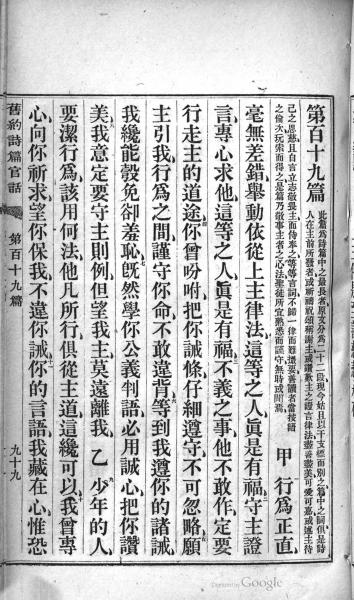 第百十九篇
此篇為詩篇中之最長者原文分為二十二段現今姑且以干支標而別之篇中之詞俱是時
人在主前所發者或祈禱或頌稱謝主或讚歎主之證言律法盡善盡美可愛可嘉或述主待
己之恩慈且自言立志敬畏主而侍奉之等等言詞不歸一律而難撮要善讀者當按節
之倫次玩索而得之是篇乃敬事主者之心法聖徒所宜熟悉而謹守無時或間焉
甲 行為正直
毫無差錯舉動依從上主律法這等之人眞是有福守主證
言專心求他這等之人眞是有福不義之事他不敢作定要
行走主的道途你曾吩咐把你誡條仔細遵守不可忽略願
主引我行為之間謹守你命不敢違背等到我遵你的諸誡
我纔能彀免卻羞恥旣然學你公義判語必用誠心把你讚
美我意定要守主則例但望我主莫遠離我 乙 少年的人
要潔行為該用何法他凡所行俱從主道這纔可以我曾專
心向你祈求望你保我不違你誡你的言語我藏在心惟恐
舊約詩篇官話 第百十九篇 九十九
Digitized by Google